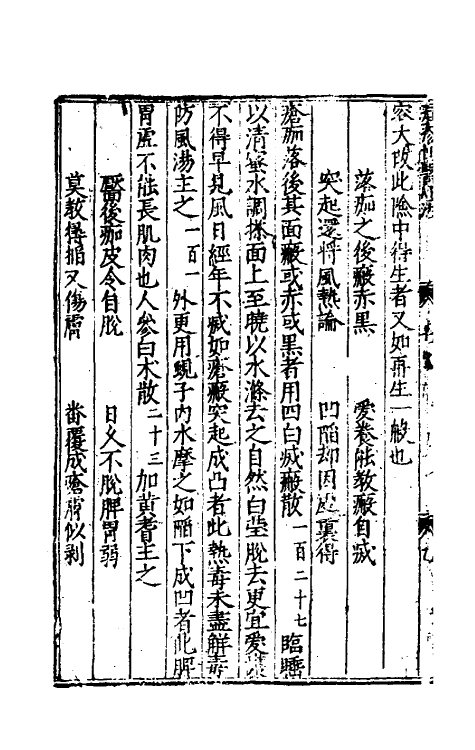 容大段此險中得生者又如再生一般也
落痂之後瘢赤黒 愛養能教瘢自滅
突起還將風熱論 凹陷却因虛裏得
瘡痂落後其面瘢或赤或黒者用四白滅瘢散一百二十七臨睡
以清蜜水調搽面上至曉以水滌去之自然白瑩脫去更宜愛
不得早見風日經年不滅如瘡瘢突起成凸者此熱毒未盡解毒
防風湯主之一百一外更用蜆子内水摩之如陷下成凹者此脾
胃虛不能長肌肉也人參白术散二十三加黃耆主之
醫後痂皮令自脫 日久不脫脾胃弱
莫教得搯又傷膚 畨覆成瘡膚似剥